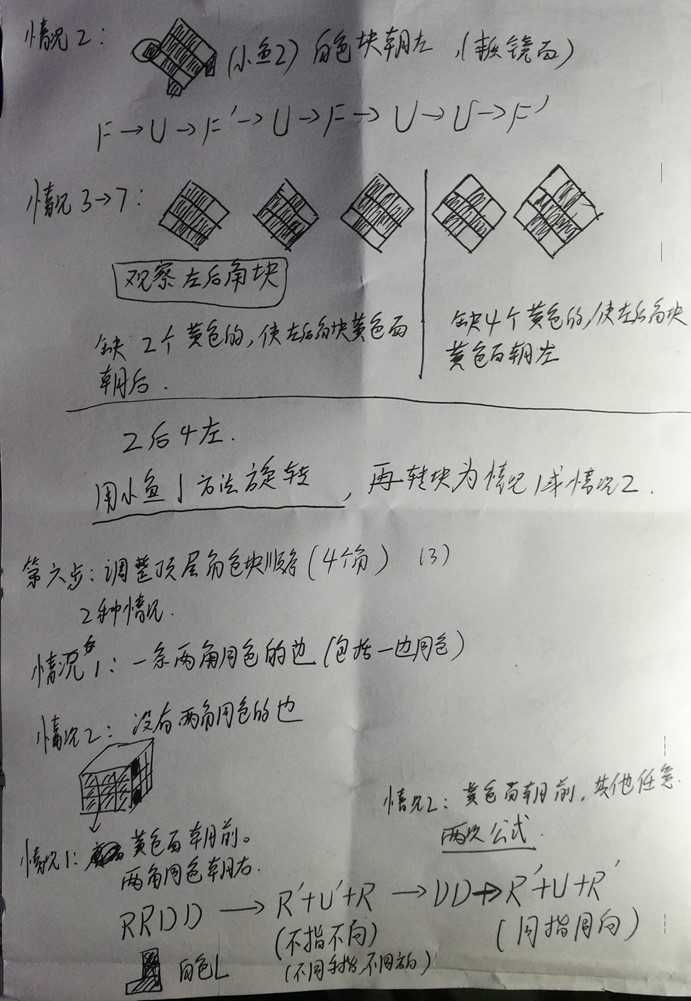 情况2: (小鱼2) 白色块朝左, (軟镜面)
F→U→F'→U→F→U→U→F'
情况3→7:
观察左后角块
缺2个黄色的,使左后角块黄色面
朝后.
缺4个黄色的,使左后角块
黄色面朝左
2后4左.
用小鱼1方法旋转, 再转块为情况1或情况2.
第六步: 调整顶层角色块顺序(4个角) (3)
2种情况.
情况1: 一条两角同色的边(包括一边同色)
情况2: 没有两角同色的边
情况2: 黄色面朝前,其他任意.
两次公式.
情况1: 黄色面朝前。
两角同色朝右.
RRDD → R'+U'+R → DD → R'+U+R'
(不指不同) (同指同向)
白色L (不同手指,不同方向)